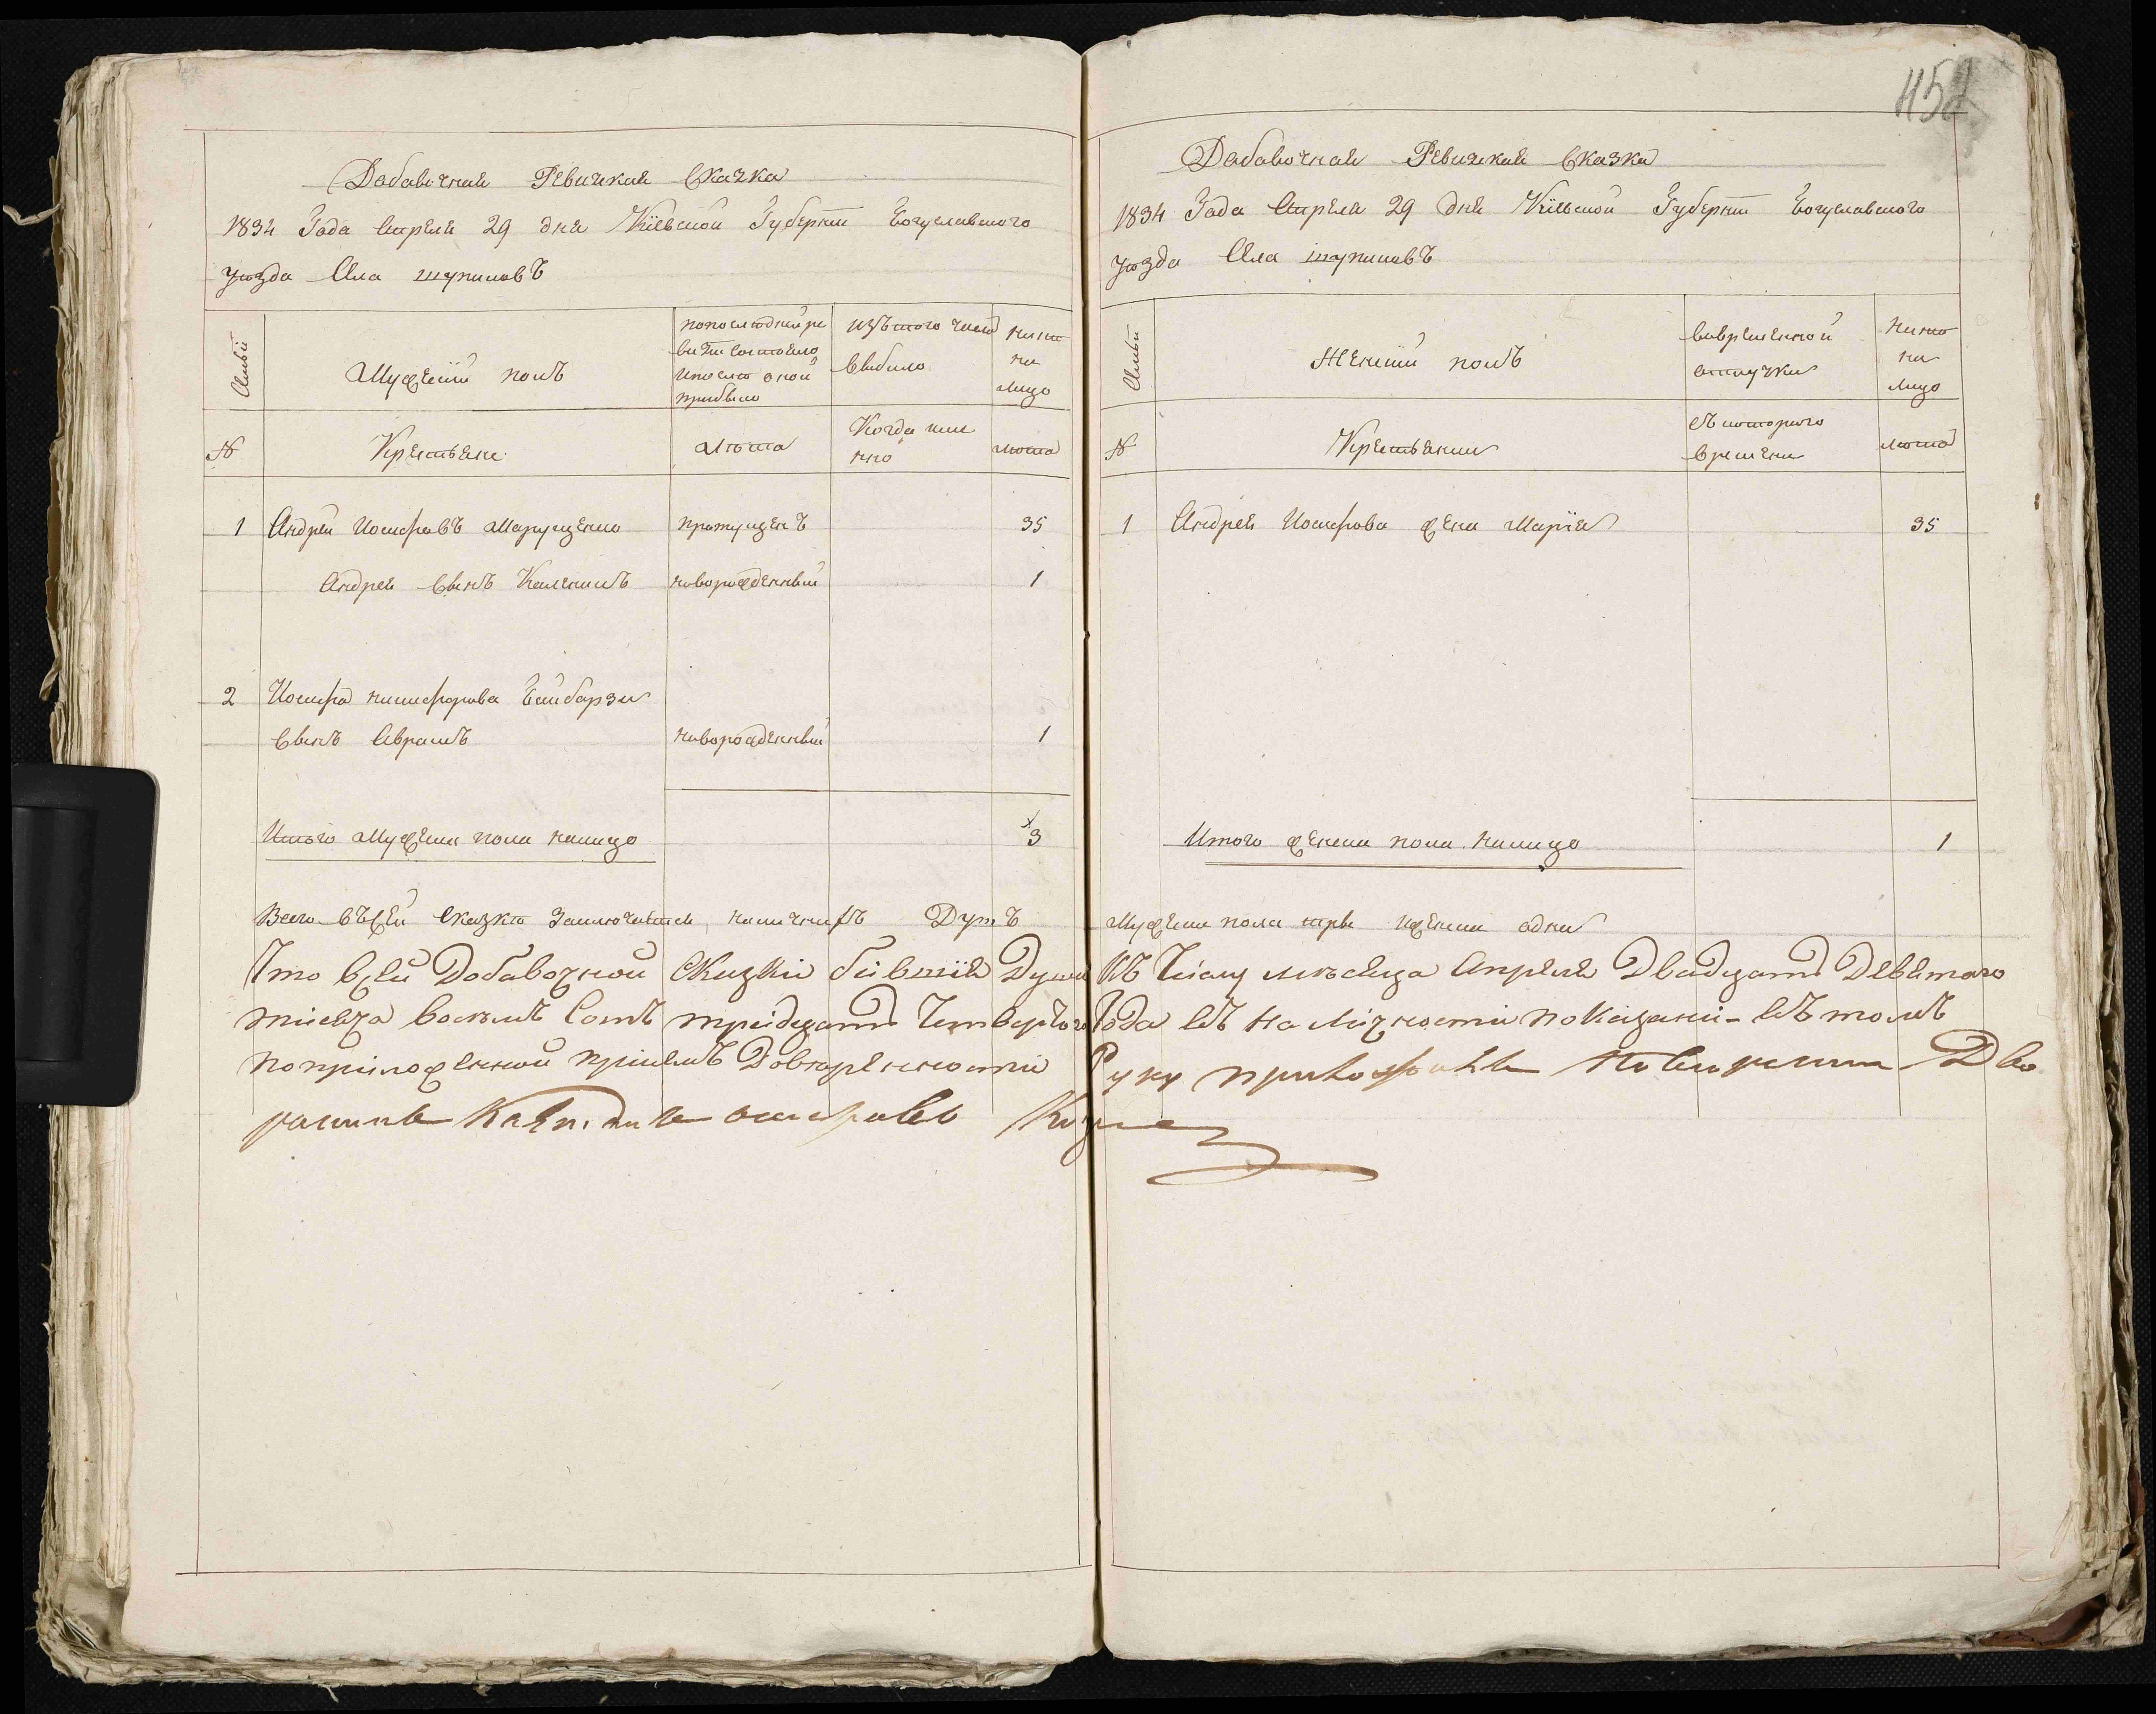 Дабавочная Ревижкая Сказка
1834 Года Апреля 29 дня Кіевской Губерніи Богуславского
уезда Села шупиковЪ
Семьи
Мужеский полЪ
попоследней ре
визіи состояло
ипосле оной
прибыло
изЪтого числа
выбило
ныне
на
лицо
№
Крестьяне
Лета
Когда име
нно
лета
1 Андрей ИосифовЪ Марущенко пропущенЪ 35
Андрея СынЪ КаленикЪ новорожденный 1
2 Иосифа никифорова Байбарзы
СынЪ АврамЪ новорожденный 1
Итого Мужеска пола налицо 3
Всего вЪсей сказке Заключается, наличныхЪ ДушЪ
452
Дабавочная Ревижкая Сказка
1834 Года Апреля 29 дня Кіевской Губерніи Богуславского
уезда Села шупиковЪ
Семьи
Женский полЪ
вовременной
отлучки
ныне
на
лицо
№
Крестьянки
сЪкоторого
времени
лета
1 Андрея Иосифова жена Марія 35
Итого женска пола налицо 1
Мужеска пола три иженска одна
Что всей Добавочной Сказкі бівшія Души кЪ Чіслу месяца Апреля Двадцать Девятого
тисяча восемЪ СотЪ трідцать Четвертого Года всЪ на лічности показани вЪ томЪ
попріложенной прісемЪ Доверенности Руку приложилЪ Дво
рянинЪ